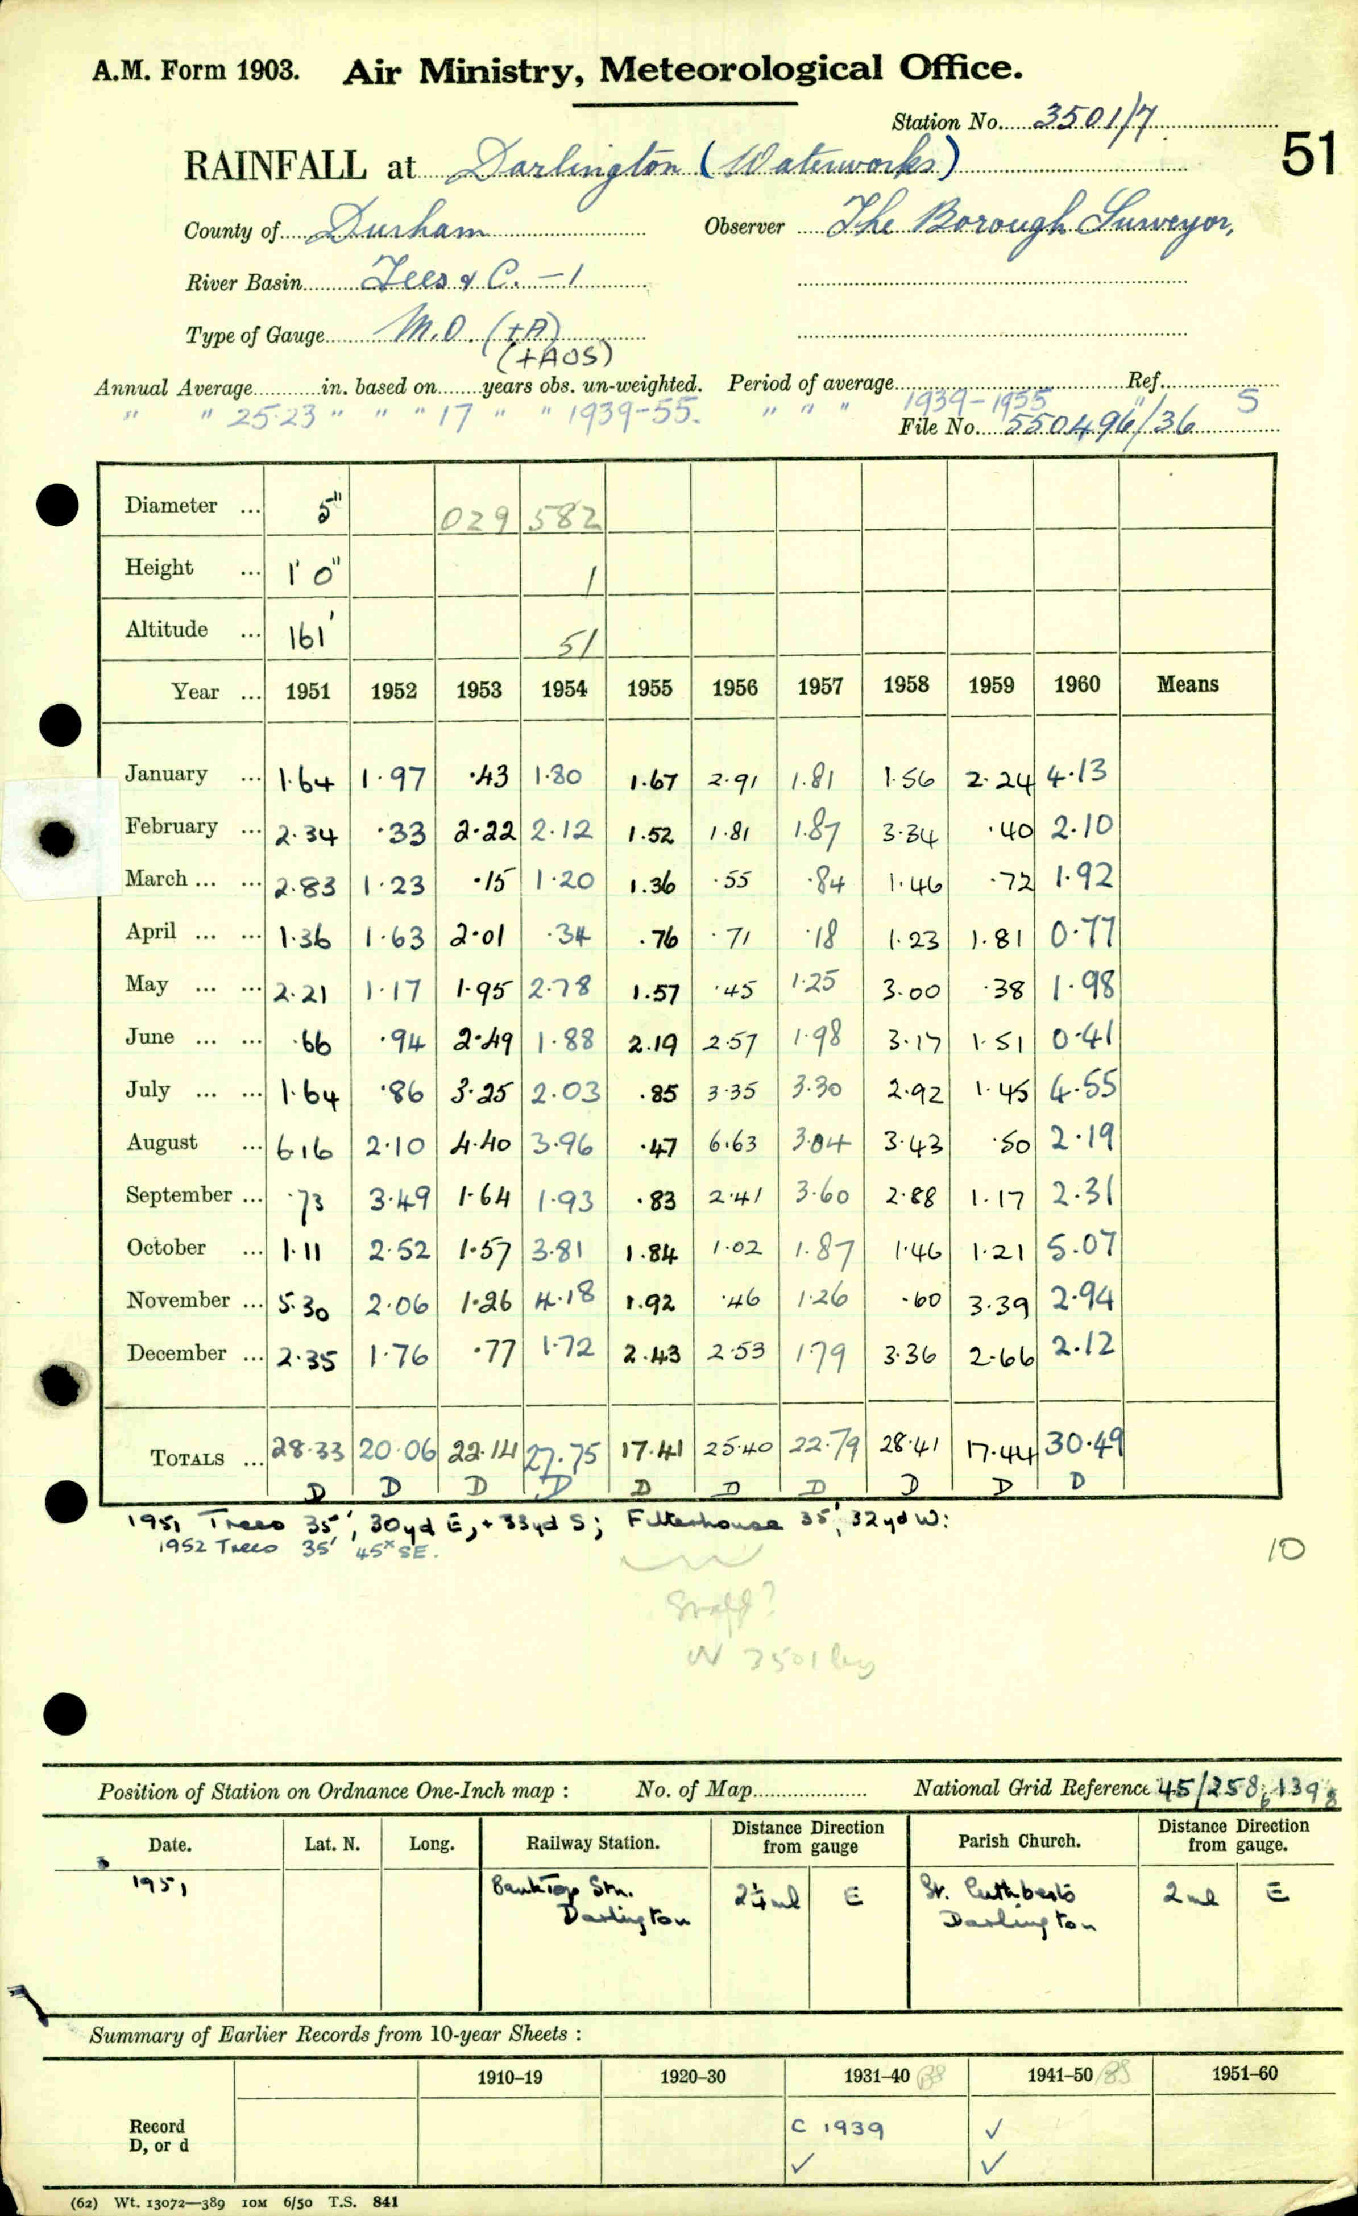 A.M. Form 1903. Air Ministry, Meteorological Office.
Station No. 3501/7
51
RAINFALL at Darlington (Waterworks)
County of Durham Observer The Borough Surveyor,
River Basin Tees & C. - 1
Type of Gauge M.O. (+A)
(+AOS)
Annual Average in. based on years obs. un-weighted. Period of average Ref.
" " 25.23 " " " 17 " " 1939-55. " " " 1939-1955 " S
File No. 550496/36
Diameter ... 5" 029 582
Height ... 1' 0" 1
Altitude ... 161' 51
Year ... 1951 1952 1953 1954 1955 1956 1957 1958 1959 1960 Means
January ... 1.64 1.97 .43 1.80 1.67 2.91 1.81 1.56 2.24 4.13
February ... 2.34 .33 2.22 2.12 1.52 1.81 1.87 3.34 .40 2.10
March ... ... 2.83 1.23 .15 1.20 1.36 .55 .84 1.46 .72 1.92
April ... ... 1.36 1.63 2.01 .34 .76 .71 .18 1.23 1.81 0.77
May ... ... 2.21 1.17 1.95 2.78 1.57 .45 1.25 3.00 .38 1.98
June ... ... .66 .94 2.49 1.88 2.19 2.57 1.98 3.17 1.51 0.41
July ... ... 1.64 .86 3.25 2.03 .85 3.35 3.30 2.92 1.45 4.55
August ... 6.16 2.10 4.40 3.96 .47 6.63 3.04 3.43 .50 2.19
September ... .73 3.49 1.64 1.93 .83 2.41 3.60 2.88 1.17 2.31
October ... 1.11 2.52 1.57 3.81 1.84 1.02 1.87 1.46 1.21 5.07
November ... 5.30 2.06 1.26 4.18 1.92 .46 1.26 .60 3.39 2.94
December ... 2.35 1.76 .77 1.72 2.43 2.53 1.79 3.36 2.66 2.12
TOTALS ... 28.33 20.06 22.14 27.75 17.41 25.40 22.79 28.41 17.44 30.49
D D D D D D D D D D
1951 Trees 35', 30yd E, + 33yd S; Filterhouse 35', 32yd W:
1952 Trees 35' 45x SE.
10
W 3501
Position of Station on Ordnance One-Inch map : No. of Map National Grid Reference 45/2586 1398
Date. Lat. N. Long. Railway Station. Distance Direction from gauge Parish Church. Distance Direction from gauge.
1951 Bank Top Stn. 2¼ml E St. Cuthberts 2ml E
Darlington Darlington
Summary of Earlier Records from 10-year Sheets :
1910–19 1920–30 1931–40 1941–50 1951–60
Record C 1939 ✓
D, or d ✓ ✓
(62) Wt. 13072—389 10M 6/50 T.S. 841